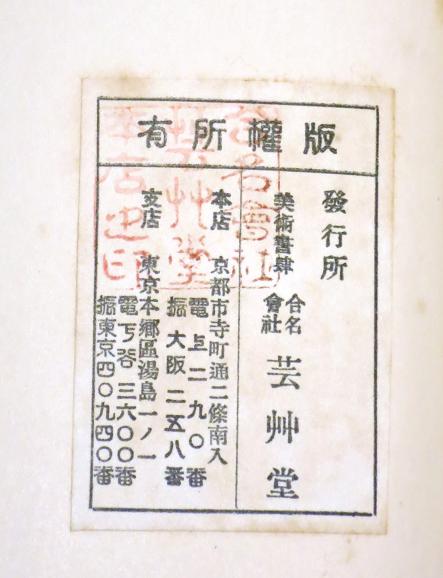 版權所有
發行所
美術書肆 合名會社 芸艸堂
本店 京都市寺町通二條南入
電上二九〇番
振大阪二五八番
支店 東京本鄉區湯島一ノ一
電下谷三六〇〇番
振東京四〇九四〇番
合名會社
芸艸堂
本店之印